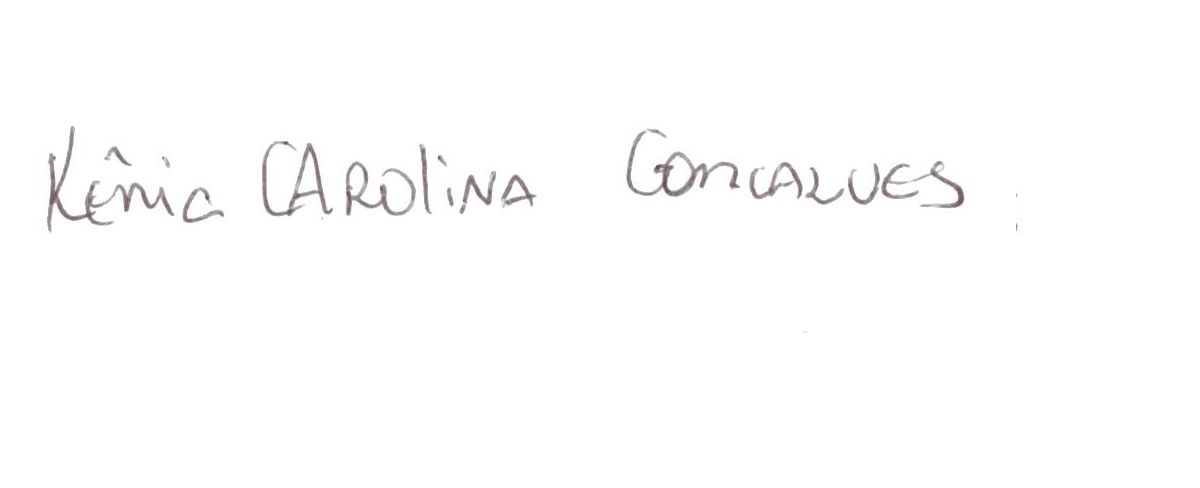 Kênia CAROLINA GONCALVES